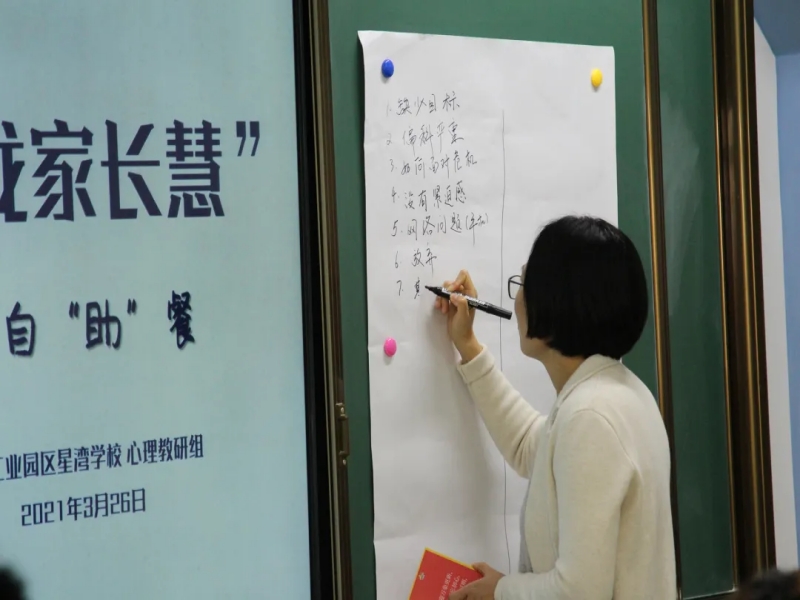 我家长慧”
自“助”餐
工业园区星湾学校 心理教研组
2021年3月26日
1. 缺少目标
2. 偏科严重
3. 如何面对危机
4. 没有紧迫感
5. 网络问题(手机)
6. 放弃
7.